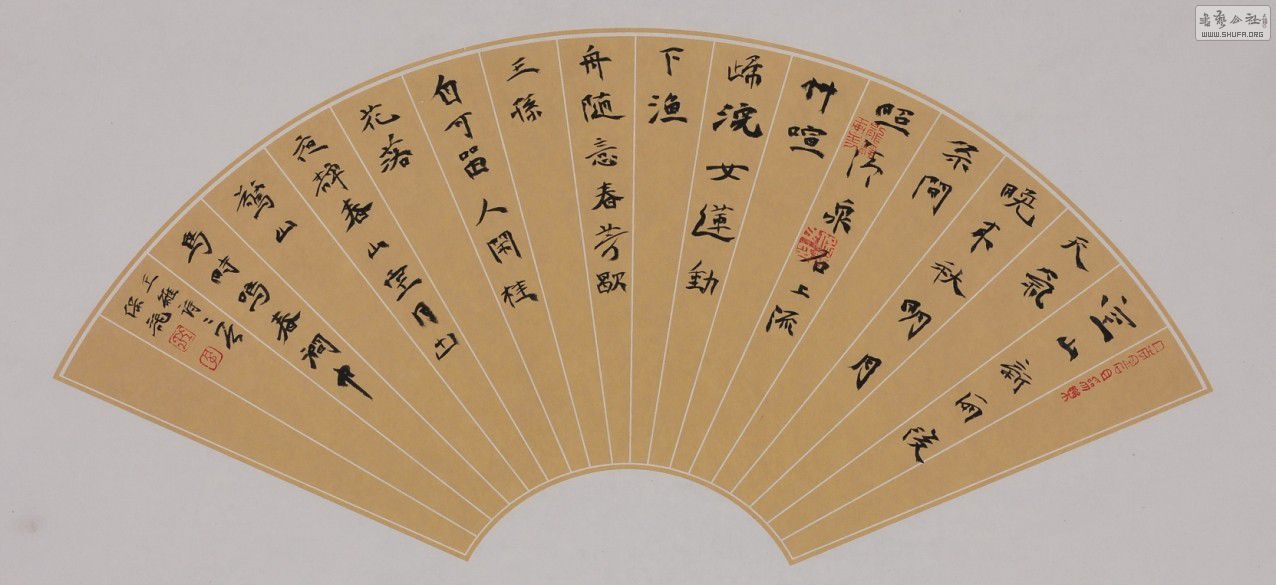 空山新雨後
天氣
晚来秋明月
松間
照清泉石上流
竹喧
歸浣女蓮動
下漁
舟随意春芳歇
王孫
自可留人閒桂
花落
夜静春山空月出
驚山
鳥時鳴春澗中
王維詩二首
書藝公社
WWW.SHUFA.ORG